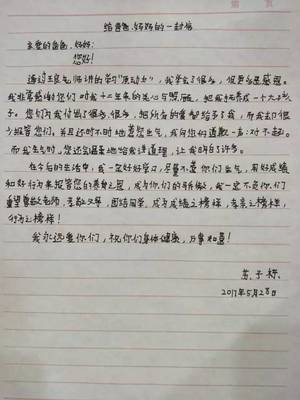 给爸爸、妈妈的一封信
亲爱的爸爸、妈妈:
您好!
通过王良老师讲的学习"原动力",我学会了很多,但更多是感恩。
我非常感谢您们对我十二年来的关心与照顾,把我抚养成一个大小伙
子。您们为我付出了很多、很多,把所有的爱都给了我,而我却很
少报答您们,并且还时不时地惹您生气,我向您们道歉一声:对不起。
而我生气时,您还会温柔地给我讲道理,让我明白了许多。
在今后的生活中,我一定好好学习,尽量不惹你们生气,用好成绩
和好行为来报答您的养育之恩,成为你们的骄傲,我一定不负你们
重望尊敬老师,孝敬父母,团结同学,成为成绩之榜样,孝亲之榜样,
行为之榜样!
我永远爱你们,祝你们身体健康,万事如意!
子
2017年5月28日